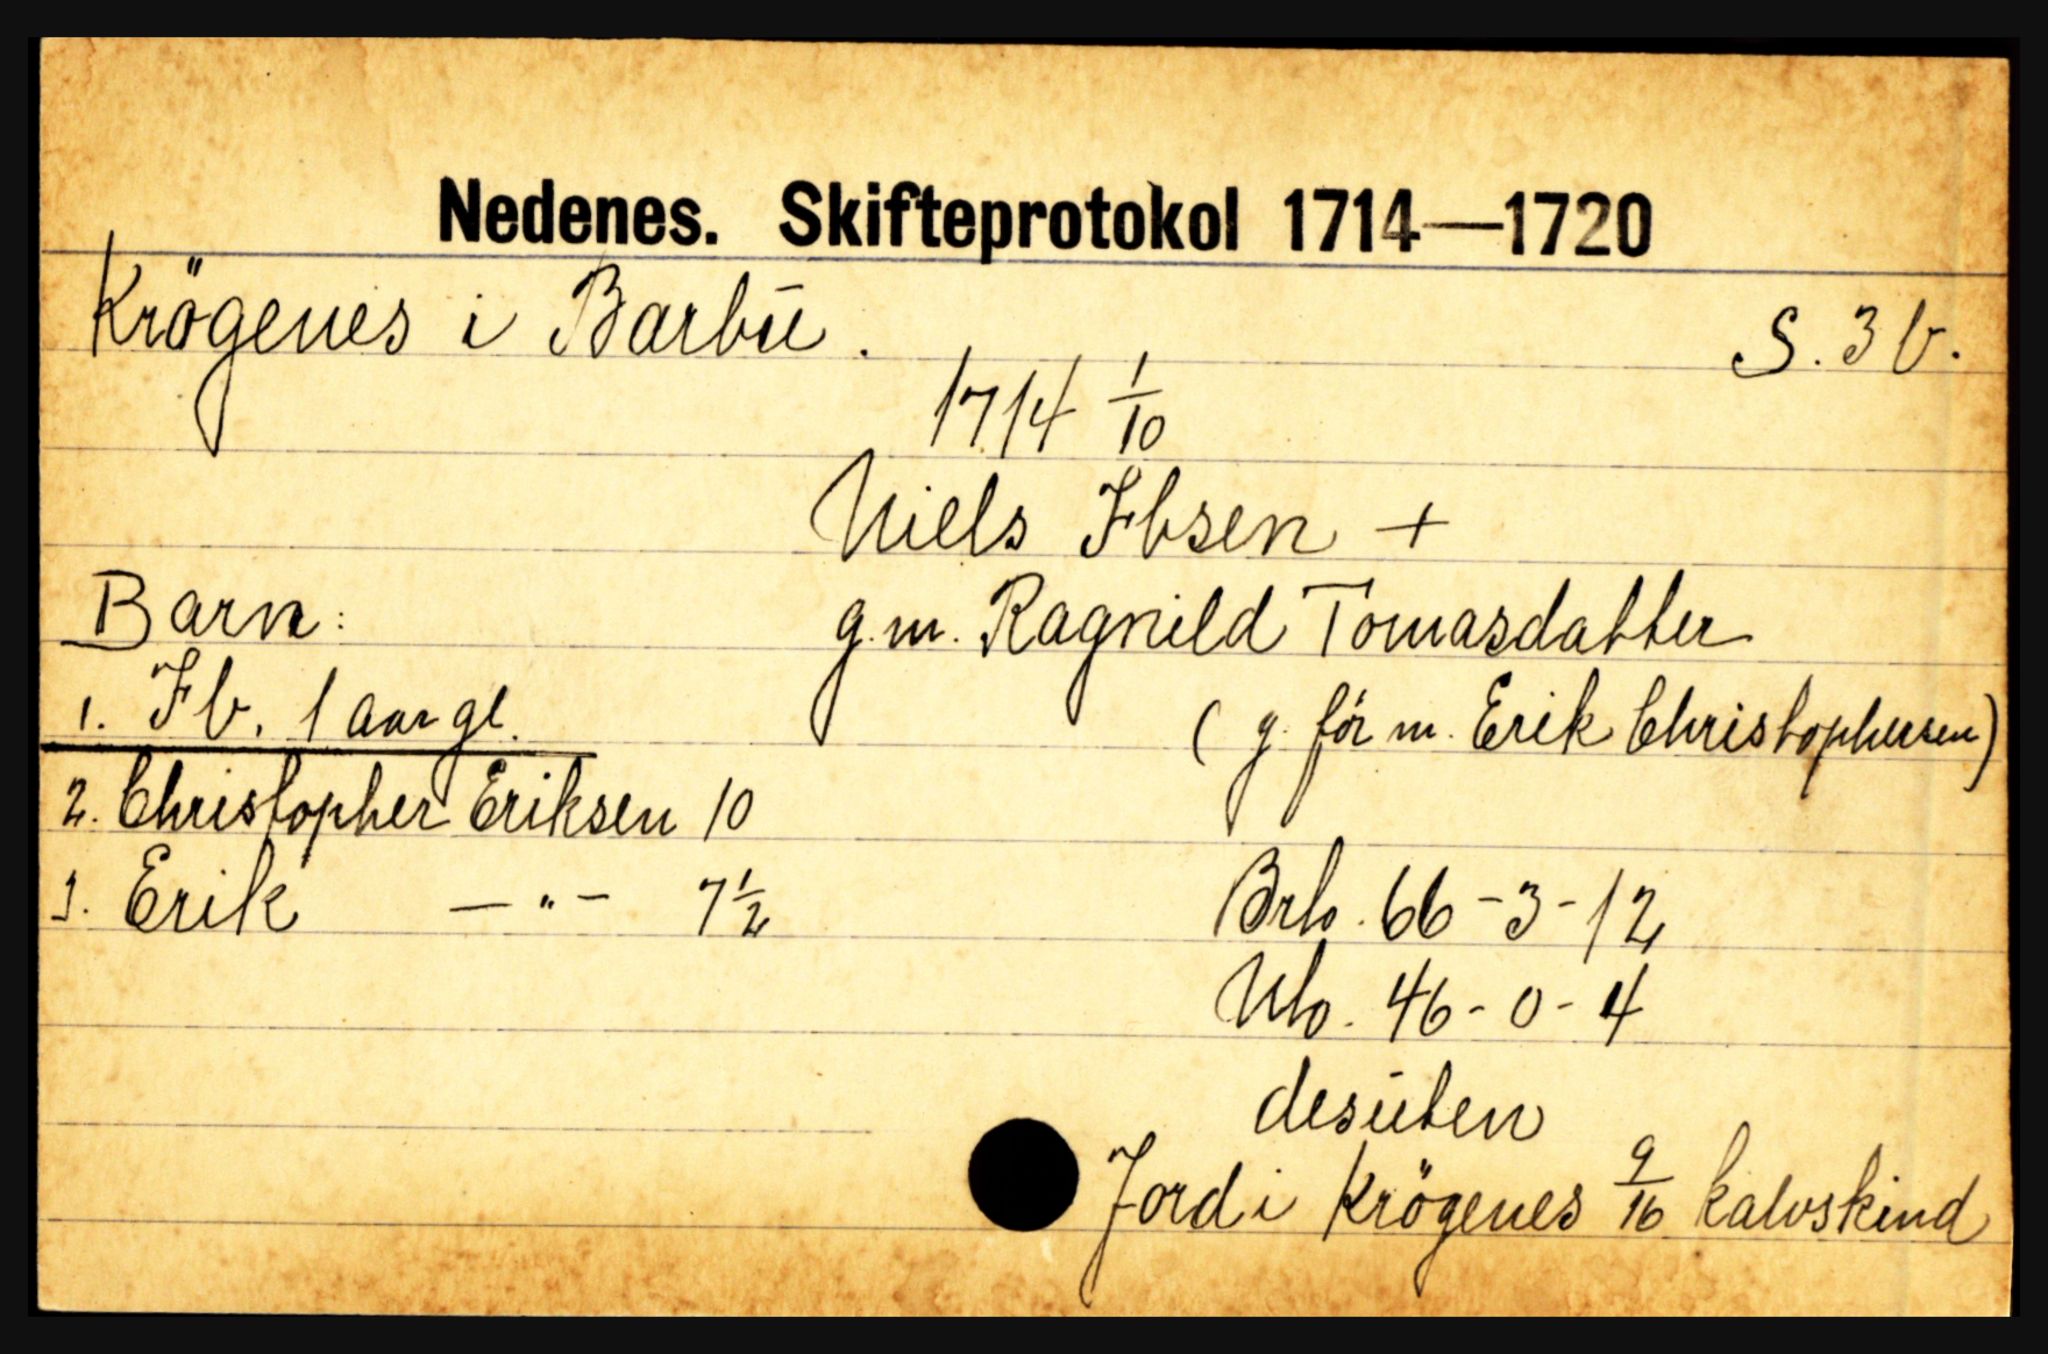 Nedenes. Skifteprotokol 1714—1720
Krögenes i Barbū.
S. 3 b.
1714 1/10
Niels Ibsen +
Barn:
g. m. Ragnild Tomasdatter
1. Ib. 1 Aar gl.
( g. för m. Erik Christophersen)
2. Christopher Eriksen 10
3. Erik — " — 7 1/2
Brb. 66-3-12
Nb. 46-0-4
desūten
Jord i Krögenes 9/16 kalvskind